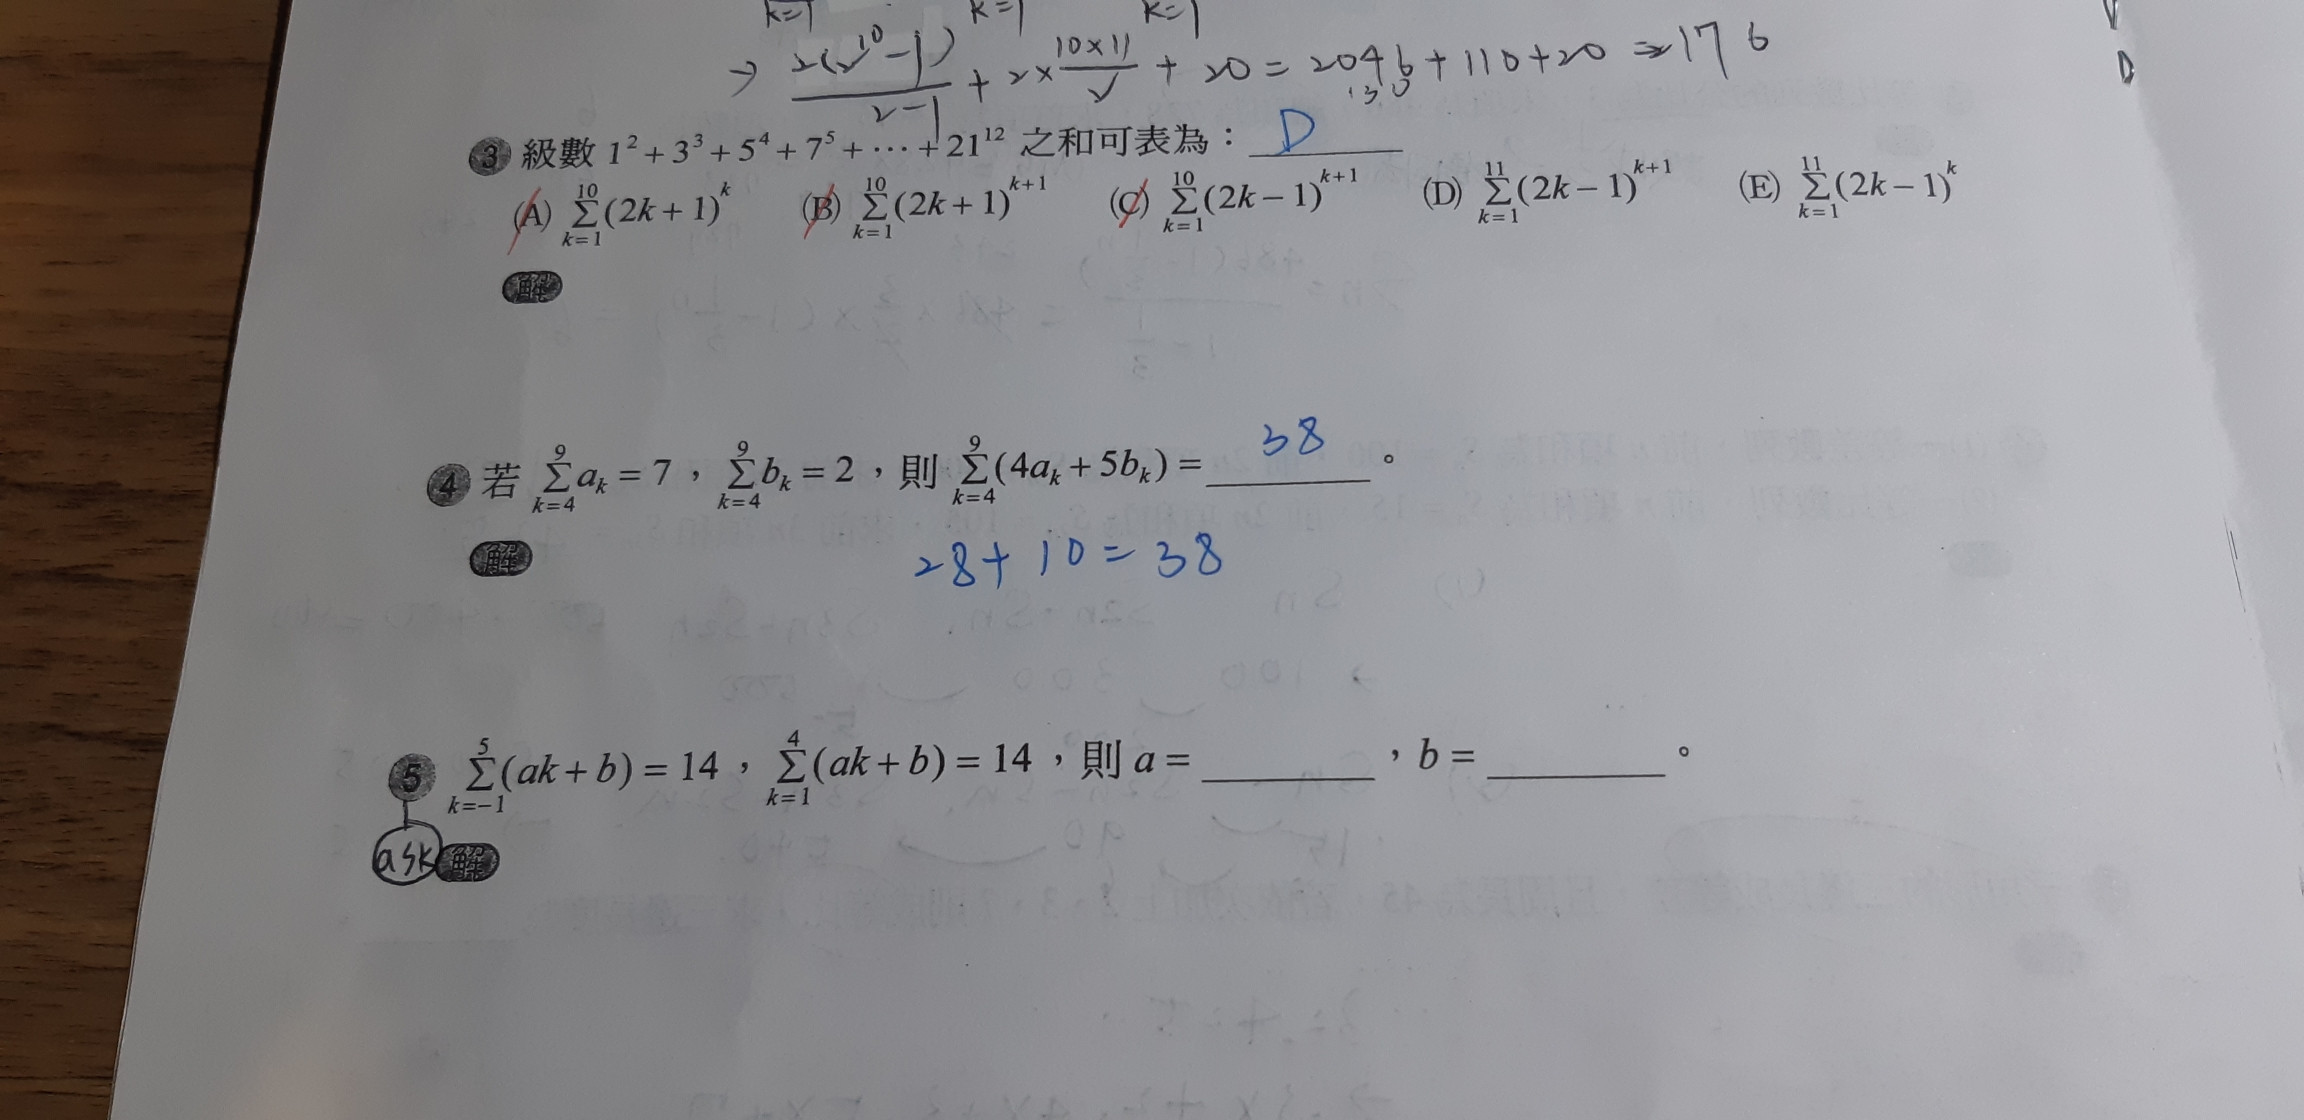 k=1 k=1 k=1
→ 2(2^10-1)/2-1 + 2×10×11/2 + 20 = 2046+110+20 ⇒ 176
130
D
3 級數 1²+3³+5⁴+7⁵+⋯+21¹² 之和可表為：D
(A) ∑_{k=1}^{10}(2k+1)^k (B) ∑_{k=1}^{10}(2k+1)^{k+1} (C) ∑_{k=1}^{10}(2k-1)^{k+1} (D) ∑_{k=1}^{11}(2k-1)^{k+1} (E) ∑_{k=1}^{11}(2k-1)^k
解
4 若 ∑_{k=4}^{9}a_k=7，∑_{k=4}^{9}b_k=2，則 ∑_{k=4}^{9}(4a_k+5b_k)=38。
解
28+10=38
5 ∑_{k=-1}^{5}(ak+b)=14，∑_{k=1}^{4}(ak+b)=14，則 a=______，b=______。
ask 解